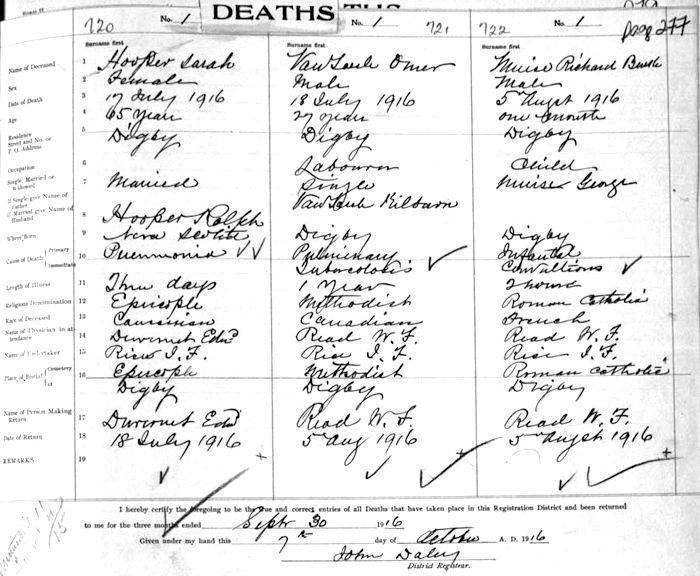 DEATHS
Page 277
720 No. 1
721 No. 1
722 No. 1
Surname first
Surname first
Surname first
Name of Deceased 1 Hooper Sarah
Omer
Muise Richard
Sex 2 Female
Male
Male
Date of Death 3 17 July 1916
18 July 1916
5 Augst 1916
Age 4 65 year
27 year
one month
Residence
Street and No. or
P. O. Address 5 Digby
Digby
Digby
Occupation 6
Labourer
Child
Single, Married or
Widowed 7 Married
Single
If Single give Name of
Father
If Married give Name of
Husband 8 Hooper Ralph
Muise George
Where Born 9 Nova Scotia
Digby
Digby
Cause of Death Primary
Immediate 10 Pneumonia
Pulmonary
Tuborcolosis
Infantal
Convultions
Length of Illness 11 Three days
1 Year
2 hours
Religious Denomination 12 Episcople
Methodist
Roman Catholic
Race of Deceased 13 Caucasian
Canadian
French
Name of Physician in attendance 14 Edwd
Read W. F.
Read W. F.
Name of Undertaker 15 Rice I. F.
Rice I. F.
Rice I. F.
Place of Burial Cemetery
at 16 Episcople
Digby
Methodist
Digby
Roman Catholic
Digby
Name of Person Making
Return 17 Edwd
Read W. F.
Read W. F.
Date of Return 18 18 July 1916
5 Aug 1916
5 Augst 1916
REMARKS 19
I hereby certify the foregoing to be the true and correct entries of all Deaths that have taken place in this Registration District and been returned
to me for the three months ended Septr 30 1916
Given under my hand this 7th day of October A. D. 1916
John Daley
District Registrar.